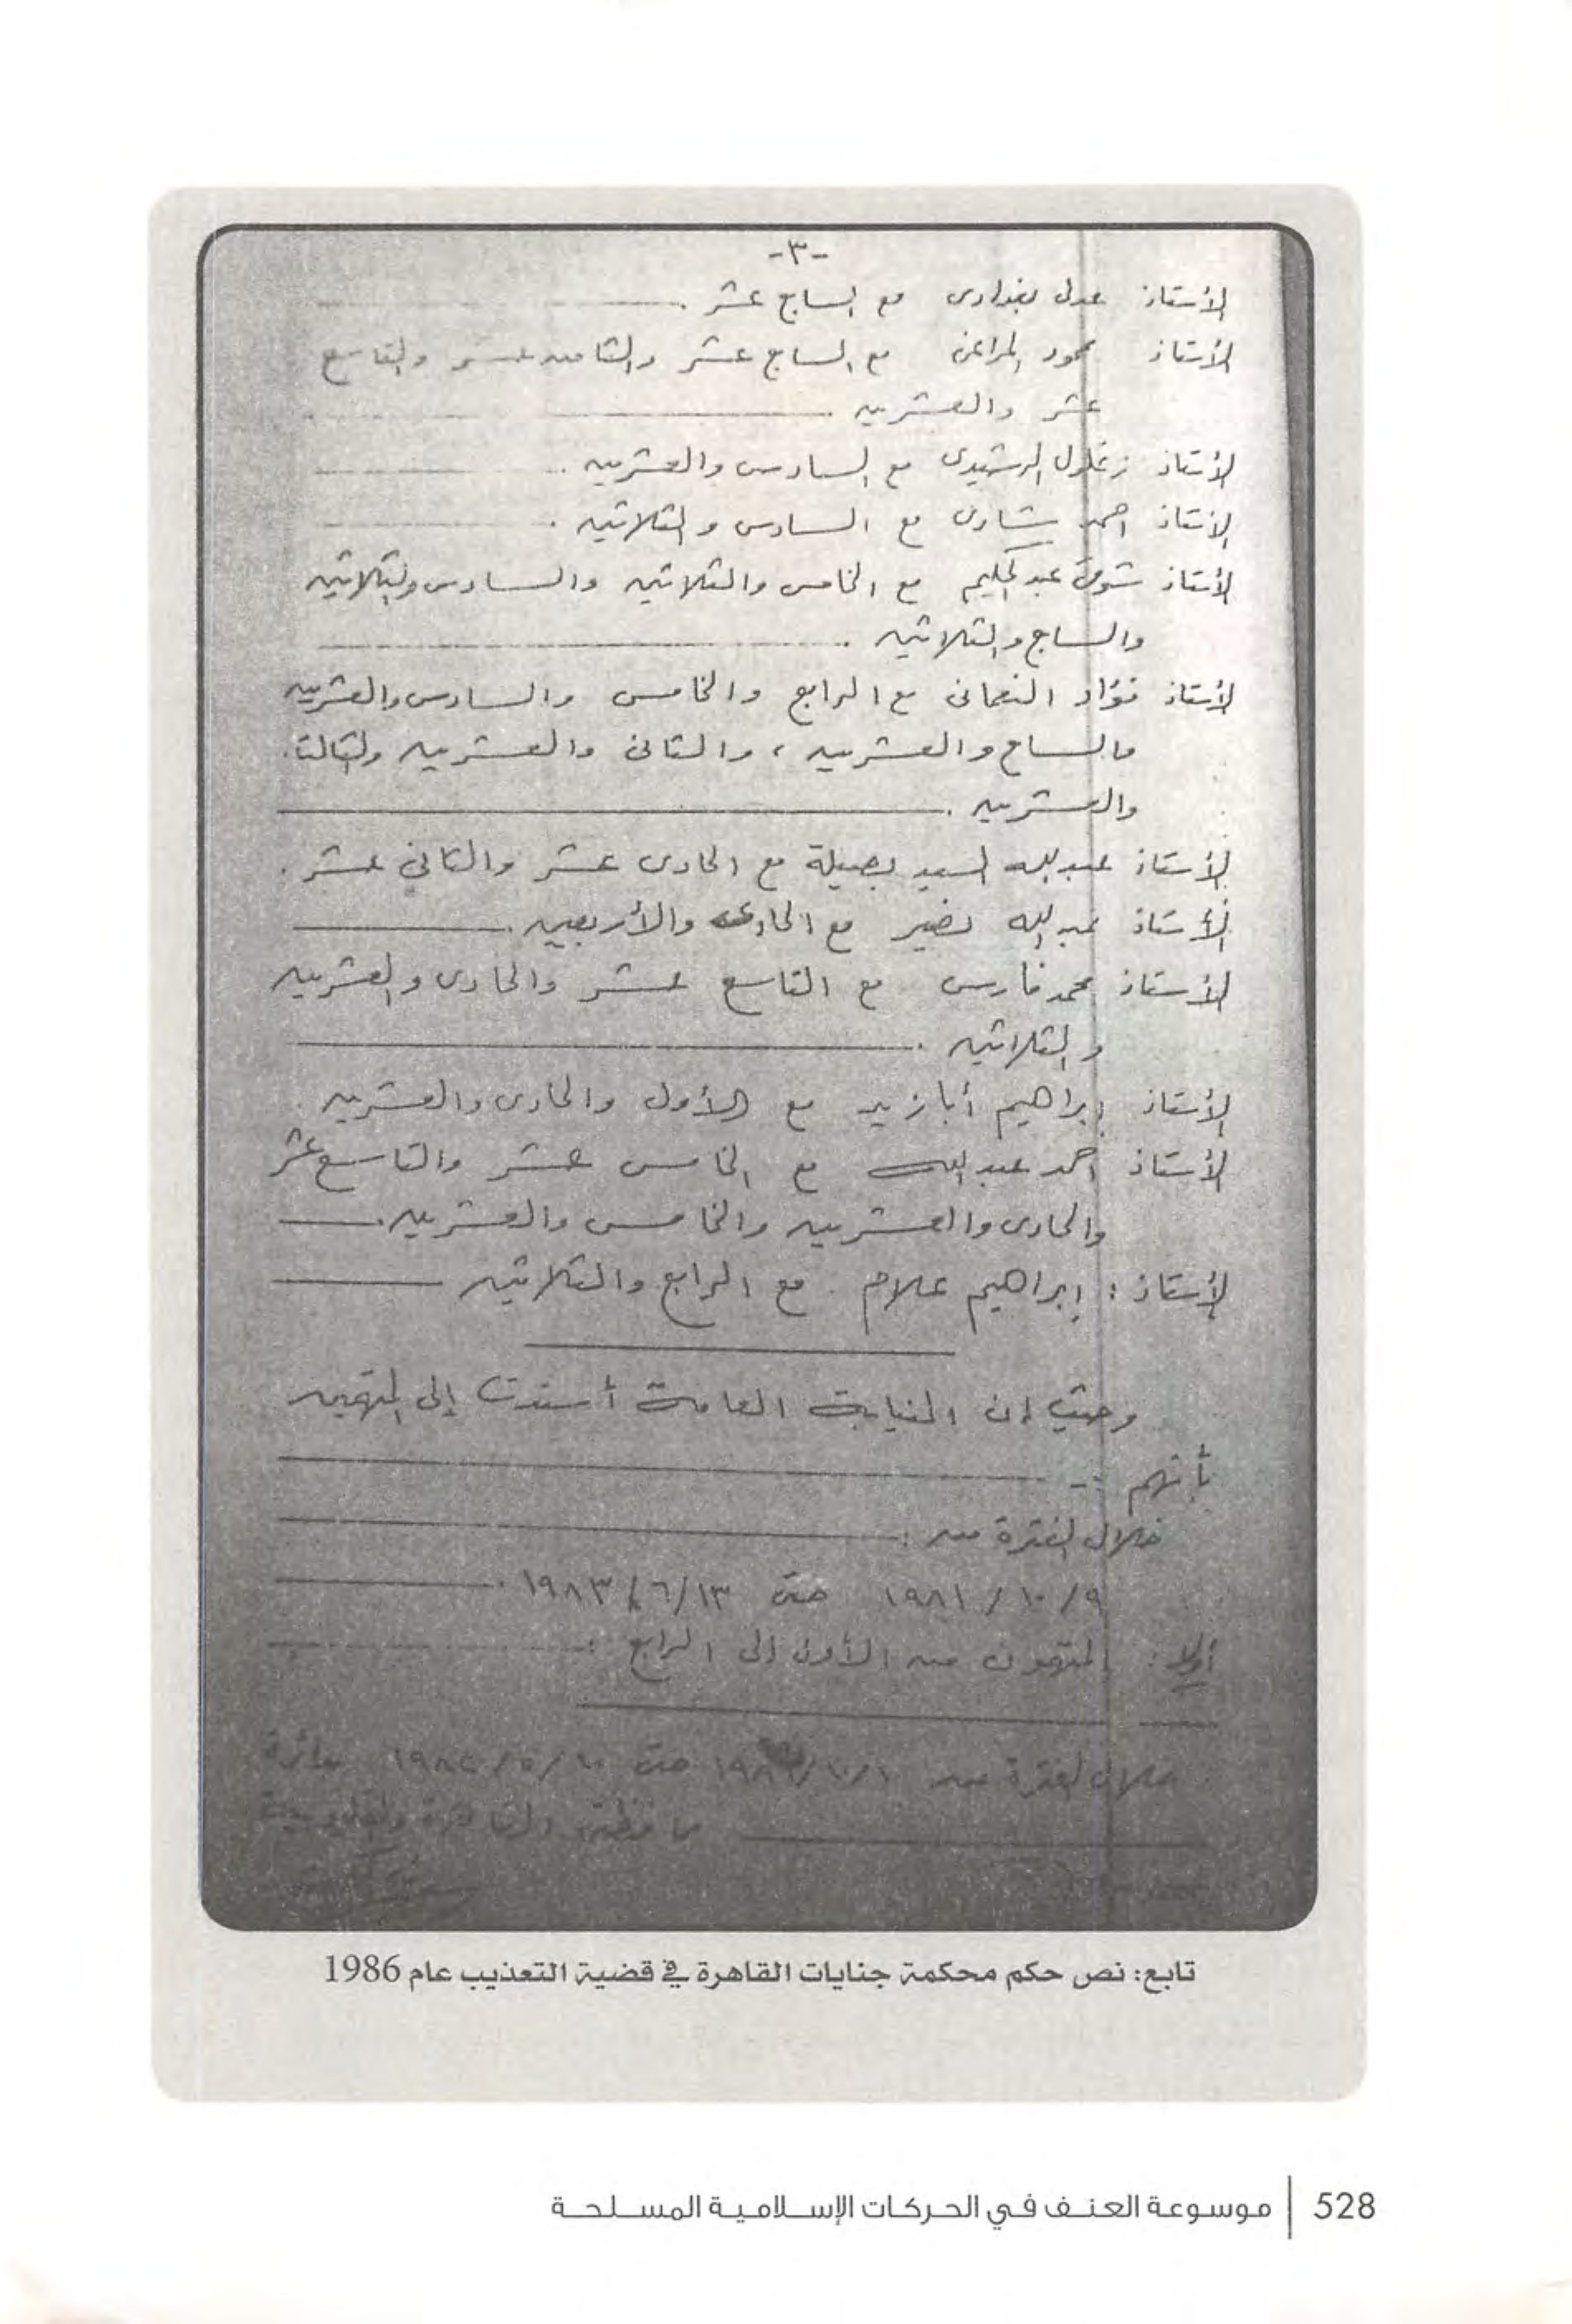 -٣-
الأستاذ عدلى بغدادى مع السابع عشر .
الأستاذ محمود المراغى مع السابع عشر والثامن عشر والتاسع
عشر والعشرين .
الأستاذ زغلول الرشيدى مع السادس والعشرين .
الأستاذ احمد شادى مع السادس والثلاثين .
الأستاذ شوقى عبد الحكيم مع الخامس والثلاثين والسادس والثلاثين
والسابع والثلاثين .
الأستاذ فؤاد النعمانى مع الرابع والخامس والسادس والعشرين
والسابع والعشرين ، والثانى والعشرين والثالث
والعشرين .
الأستاذ عبد الله السيد بصيلة مع الحادى عشر والثانى عشر .
الأستاذ عبد الله نضير مع الحادى والأربعين .
الأستاذ محمد فارس مع التاسع عشر والحادى والعشرين
والثلاثين .
الأستاذ إبراهيم أبازيد مع الأول والحادى والعشرين .
الأستاذ احمد عبد الله مع الخامس عشر والتاسع عشر
والحادى والعشرين والخامس والعشرين .
الأستاذ : إبراهيم علام . مع الرابع والثلاثين
وحيث إن النيابة العامة أسندت إلى المتهمين
بأنهم :-
خلال الفترة من :
٩/ ١٠/ ١٩٨١ حتى ١٣/ ٦/ ١٩٨٣ .
أولا : المتهمون من الأول إلى الرابع :
خلال الفترة من ١٠/١٠/ حتى بدائرة
محافظتى القاهرة والقليوبية
تابع: نص حكم محكمة جنايات القاهرة في قضية التعذيب عام 1986
528 | موسوعة العنف في الحركات الإسلامية المسلحة